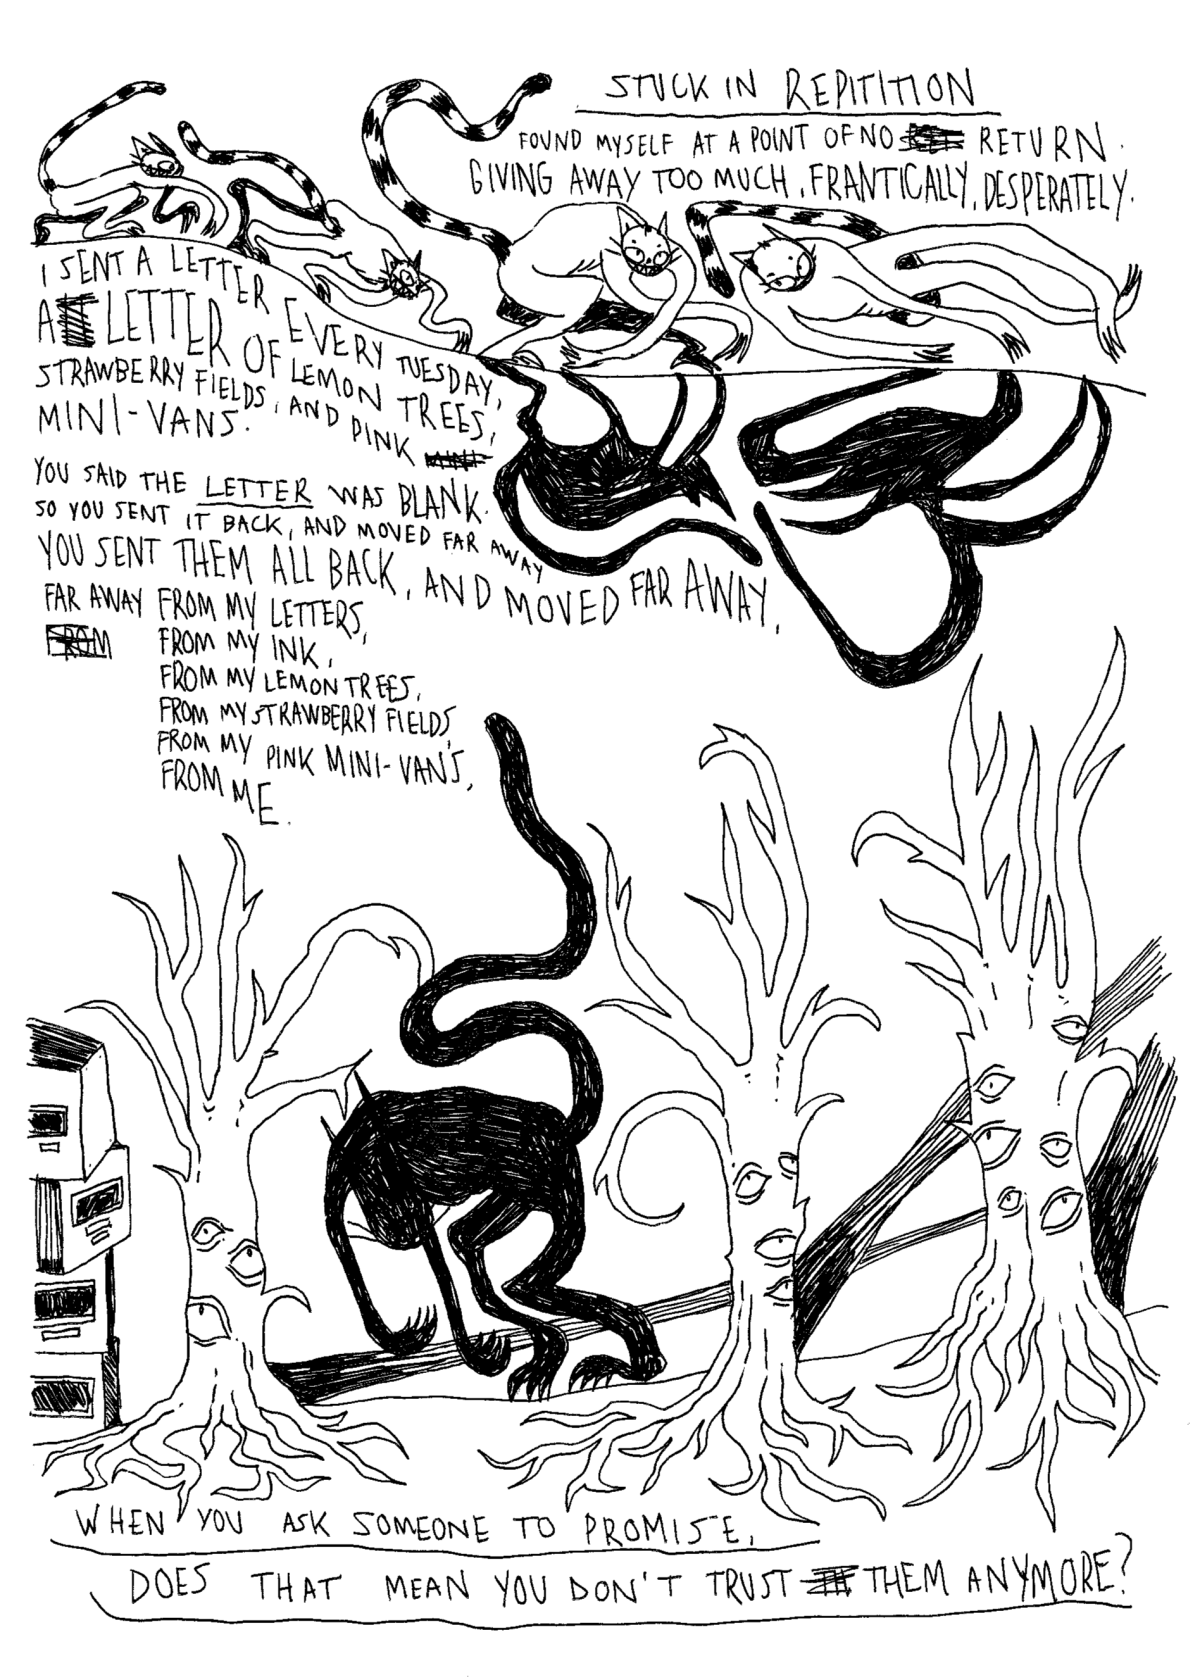 STUCK IN REPITITION
FOUND MYSELF AT A POINT OF NO RETURN.
GIVING AWAY TOO MUCH, FRANTICALLY, DESPERATELY.
I SENT A LETTER EVERY TUESDAY,
A LETTER OF LEMON TREES,
STRAWBERRY FIELDS, AND PINK
MINI-VANS.
YOU SAID THE LETTER WAS BLANK.
SO YOU SENT IT BACK, AND MOVED FAR AWAY
YOU SENT THEM ALL BACK, AND MOVED FAR AWAY,
FAR AWAY FROM MY LETTERS,
FROM MY INK,
FROM MY LEMON TREES,
FROM MY STRAWBERRY FIELDS,
FROM MY PINK MINI-VAN'S,
FROM ME.
WHEN YOU ASK SOMEONE TO PROMISE,
DOES THAT MEAN YOU DON'T TRUST THEM ANYMORE?